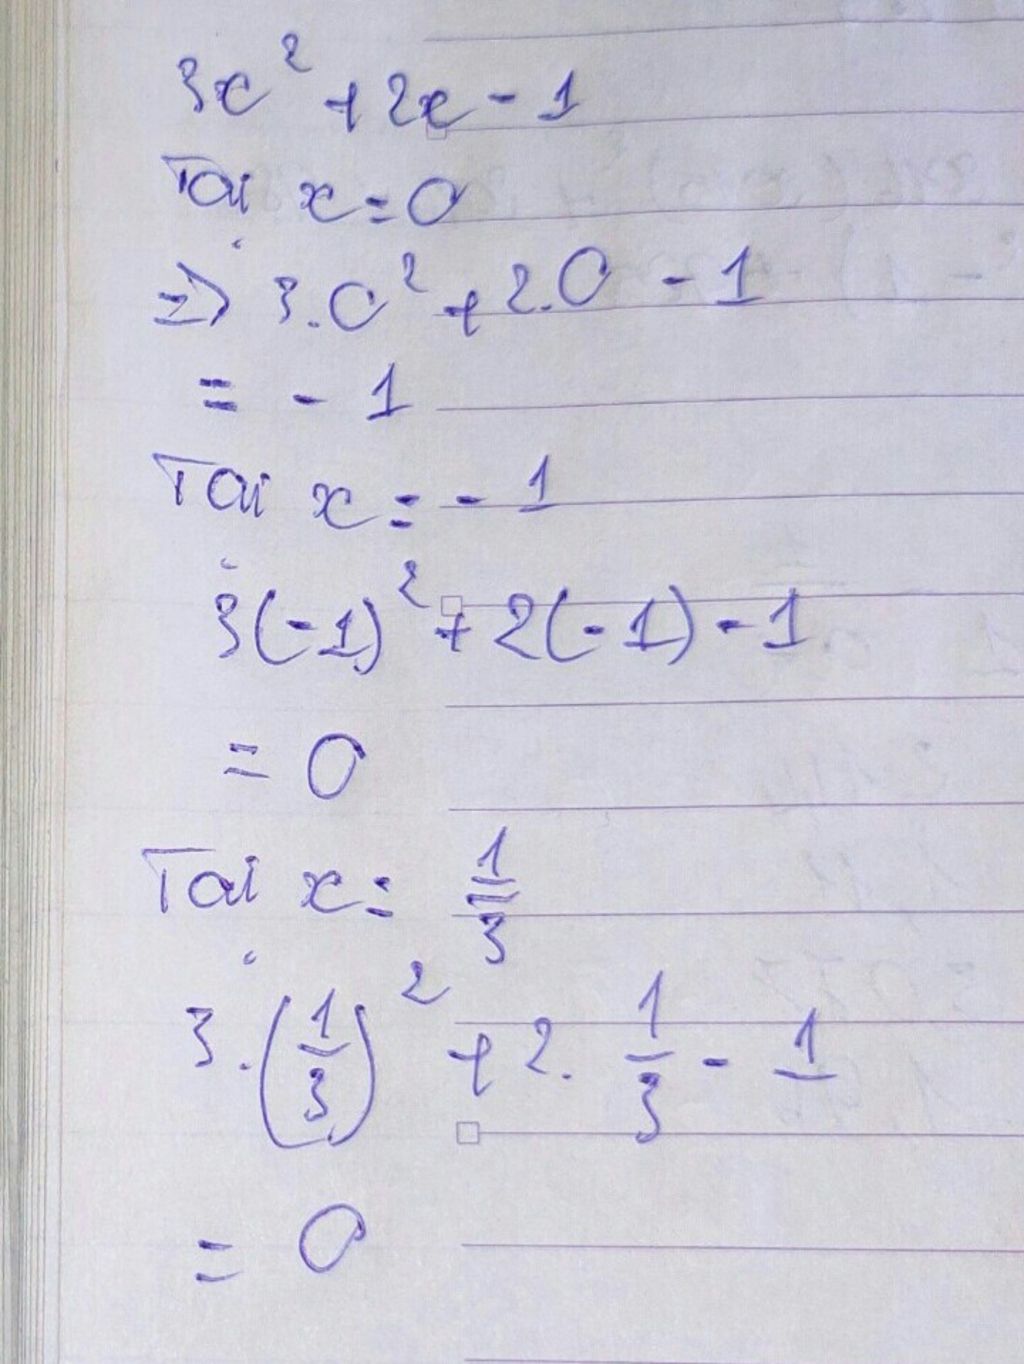 3x² + 2x - 1
Tại x = 0
=> 3.0² + 2.0 - 1
= - 1
Tại x = - 1
3(-1)² + 2(-1) - 1
= 0
Tại x = 1/3
3.(1/3)² + 2. 1/3 - 1
= 0